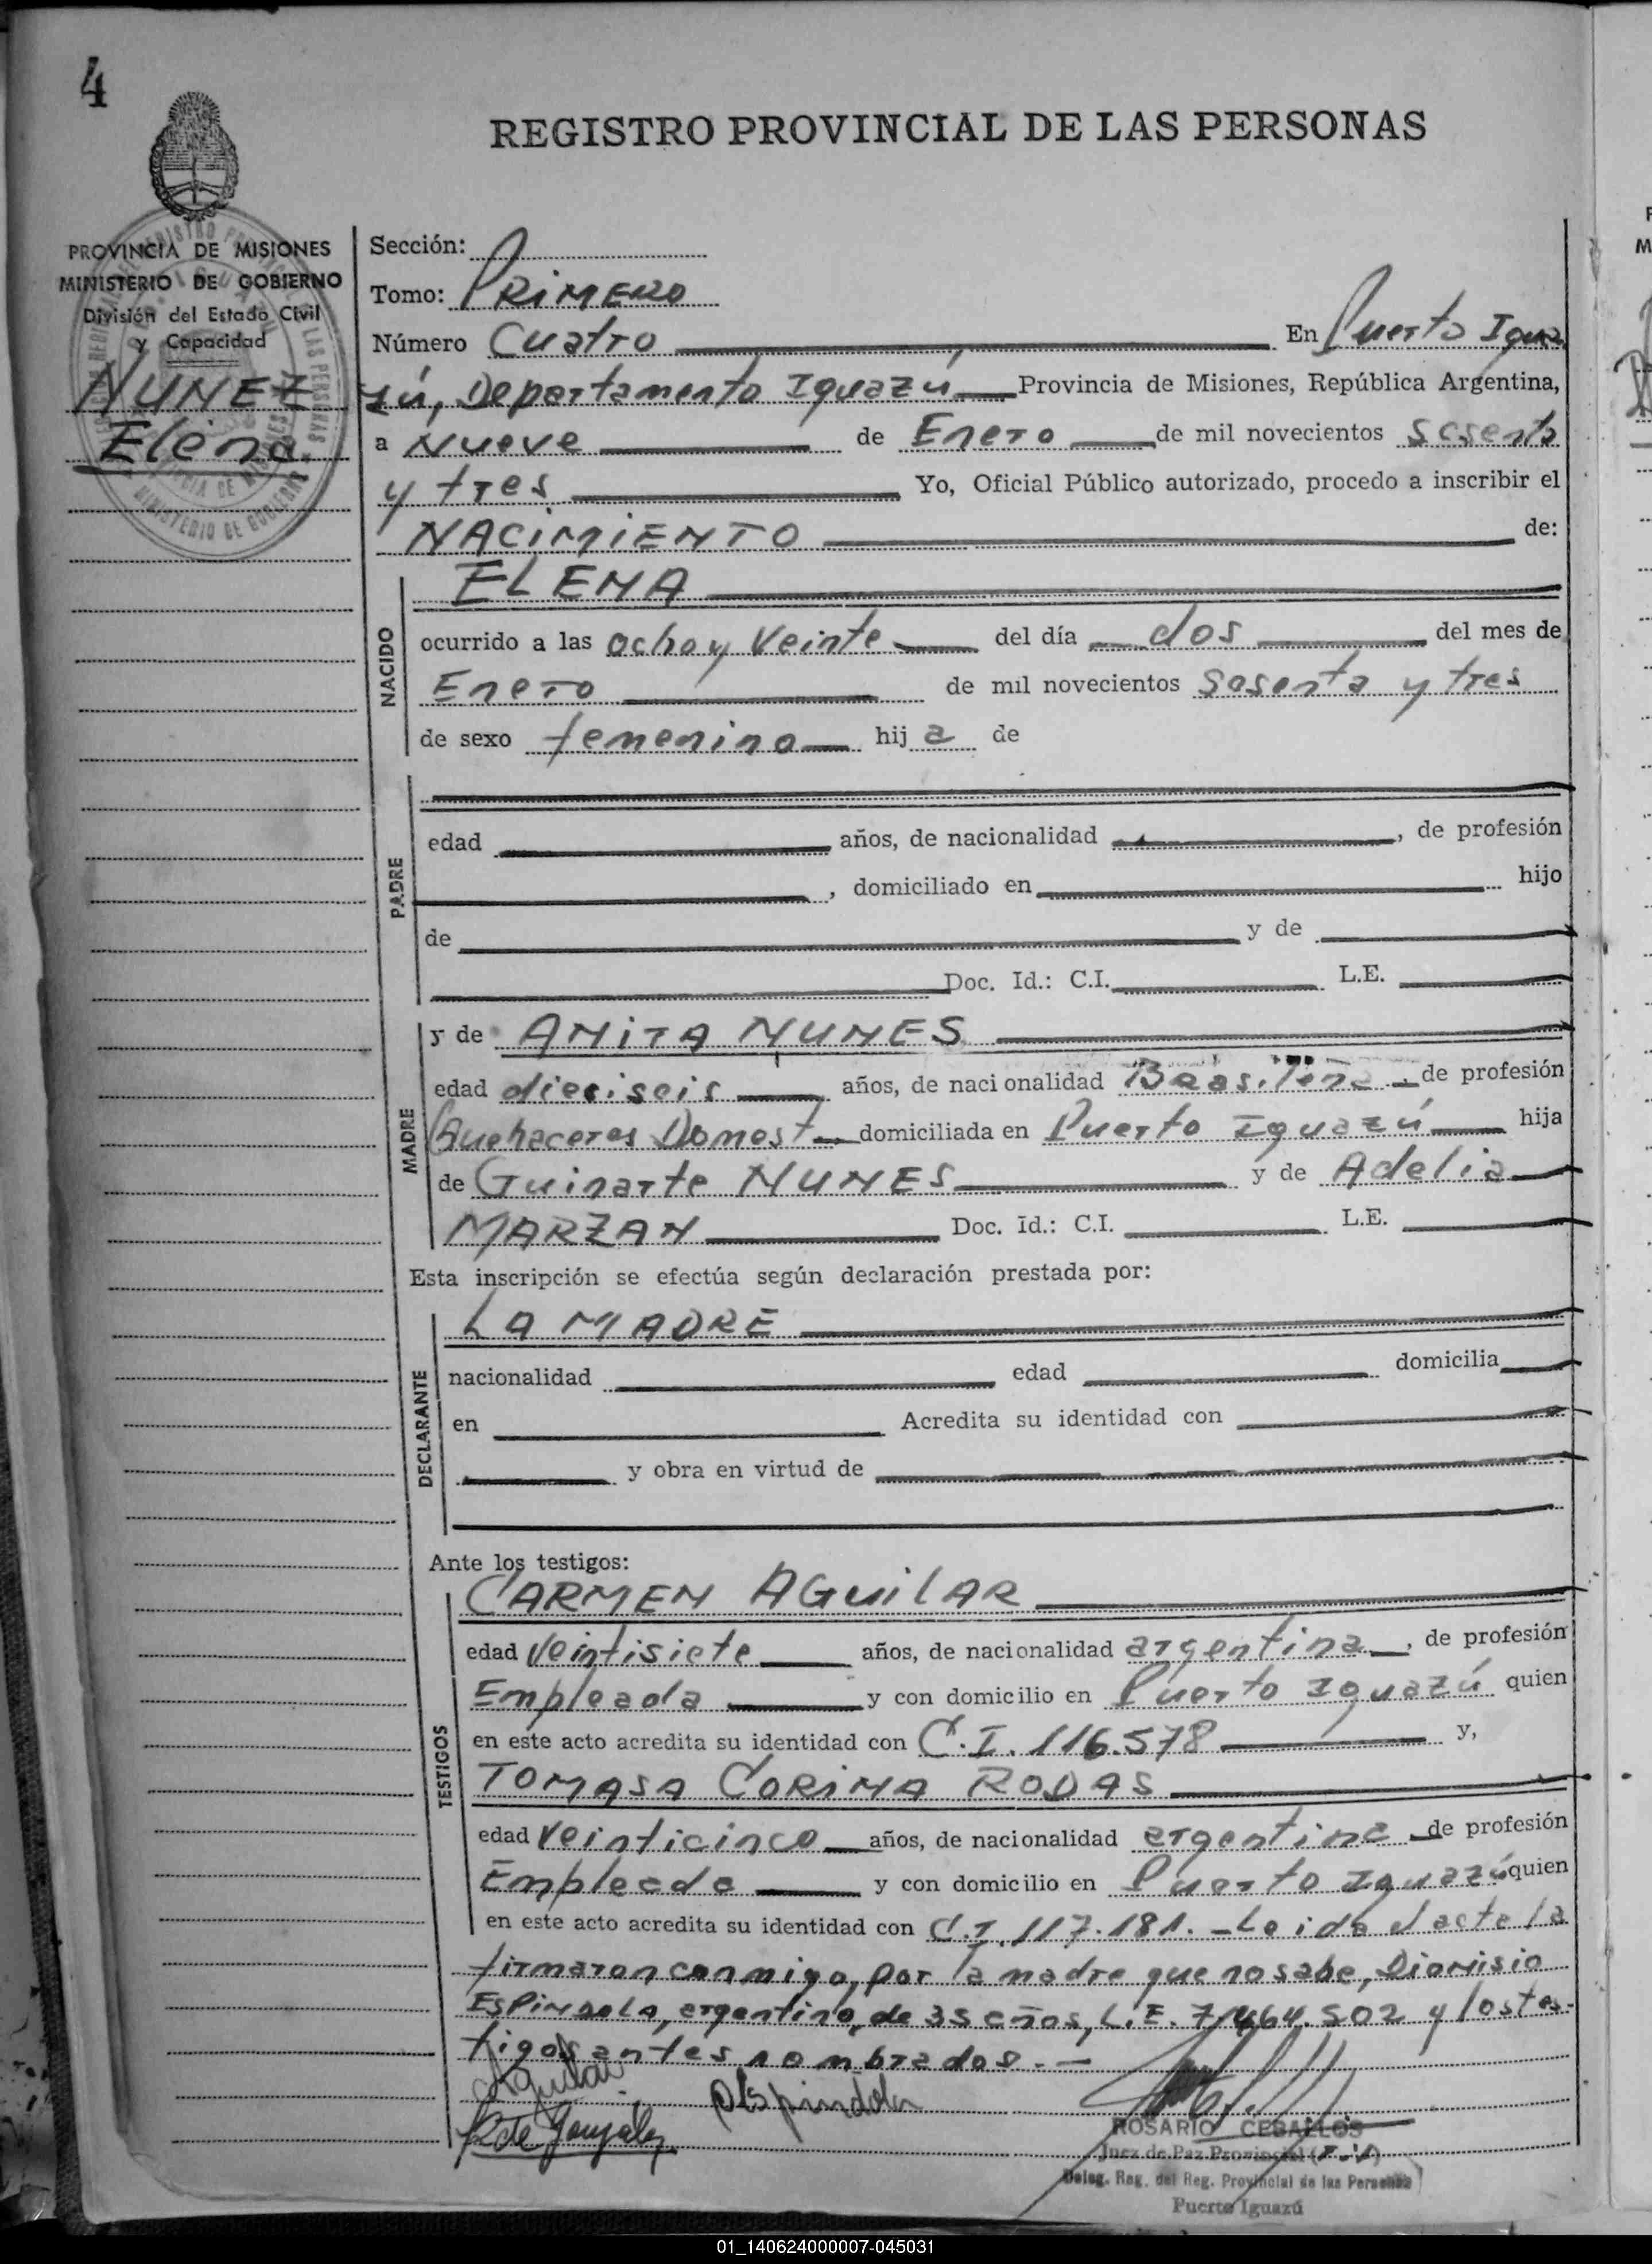 4
REGISTRO PROVINCIAL DE LAS PERSONAS
PROVINCIA DE MISIONES
MINISTERIO DE GOBIERNO
División del Estado Civil
y Capacidad
NUNEZ
Elena
Sección:
Tomo: PRIMERO
Número Cuatro En Puerto Igua
zú, Departamento Iguazú Provincia de Misiones, República Argentina,
a Nueve de Enero de mil novecientos sesenta
y tres Yo, Oficial Público autorizado, procedo a inscribir el
NACIMIENTO de:
NACIDO
ELENA
ocurrido a las ocho y Veinte del día dos del mes de
Enero de mil novecientos sesenta y tres
de sexo femenino hija de
PADRE
edad años, de nacionalidad , de profesión
, domiciliado en hijo
de y de
Doc. Id.: C.I. L.E.
MADRE
y de ANITA NUNES
edad dieciseis años, de nacionalidad Brasilena de profesión
Quehaceres Domest. domiciliada en Puerto Iguazú hija
de Guinarte NUNES y de Adelia
MARZAN Doc. Id.: C.I. L.E.
Esta inscripción se efectúa según declaración prestada por:
DECLARANTE
LA MADRE
nacionalidad edad domicilia
en Acredita su identidad con
y obra en virtud de
Ante los testigos:
TESTIGOS
CARMEN AGUILAR
edad Veintisiete años, de nacionalidad argentina, de profesión
Empleada y con domicilio en Puerto Iguazú quien
en este acto acredita su identidad con C.I. 116.578 y,
TOMASA CORINA RODAS
edad Veinticinco años, de nacionalidad argentina de profesión
Empleada y con domicilio en Puerto Iguazú quien
en este acto acredita su identidad con C.I. 117.181. - Leida el acta la
firmaron conmigo, por la madre que no sabe, Dionisio
ESPINDOLA, argentino, de 35 años, L.E. 7.464.502 y los tes-
tigos antes nombrados. -
Aguilar
DEspindola
R de González
ROSARIO CEBALLOS
Juez de Paz Provincial
Deleg. Reg. del Reg. Provincial de las Personas
Puerto Iguazú
01_140624000007-045031